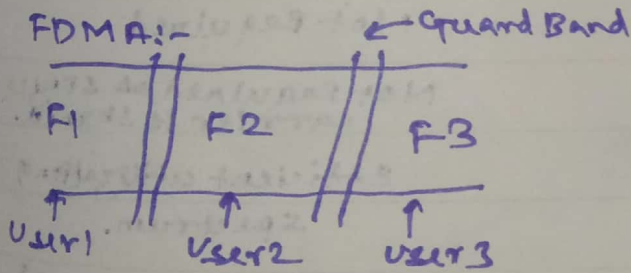 FDMA:- ← Guard Band
F1 F2 F3
User1 User2 User3